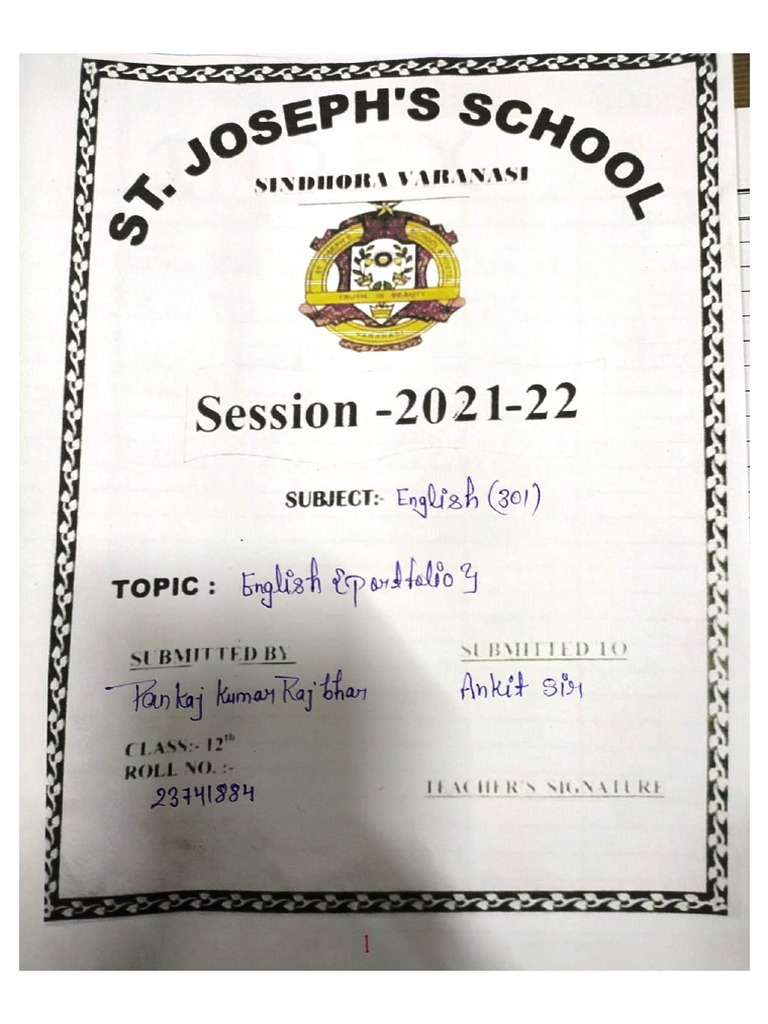 ST. JOSEPH'S SCHOOL
SINDHORA VARANASI
TRUTH IS BEAUTY
VARANASI
Session -2021-22
SUBJECT:- English (301)
TOPIC : English {portfolio}
SUBMITTED BY
SUBMITTED TO
Pankaj Kumar Rajbhar
Ankit Sir
CLASS:- 12th
ROLL NO. :-
23741884
TEACHER'S SIGNATURE
1